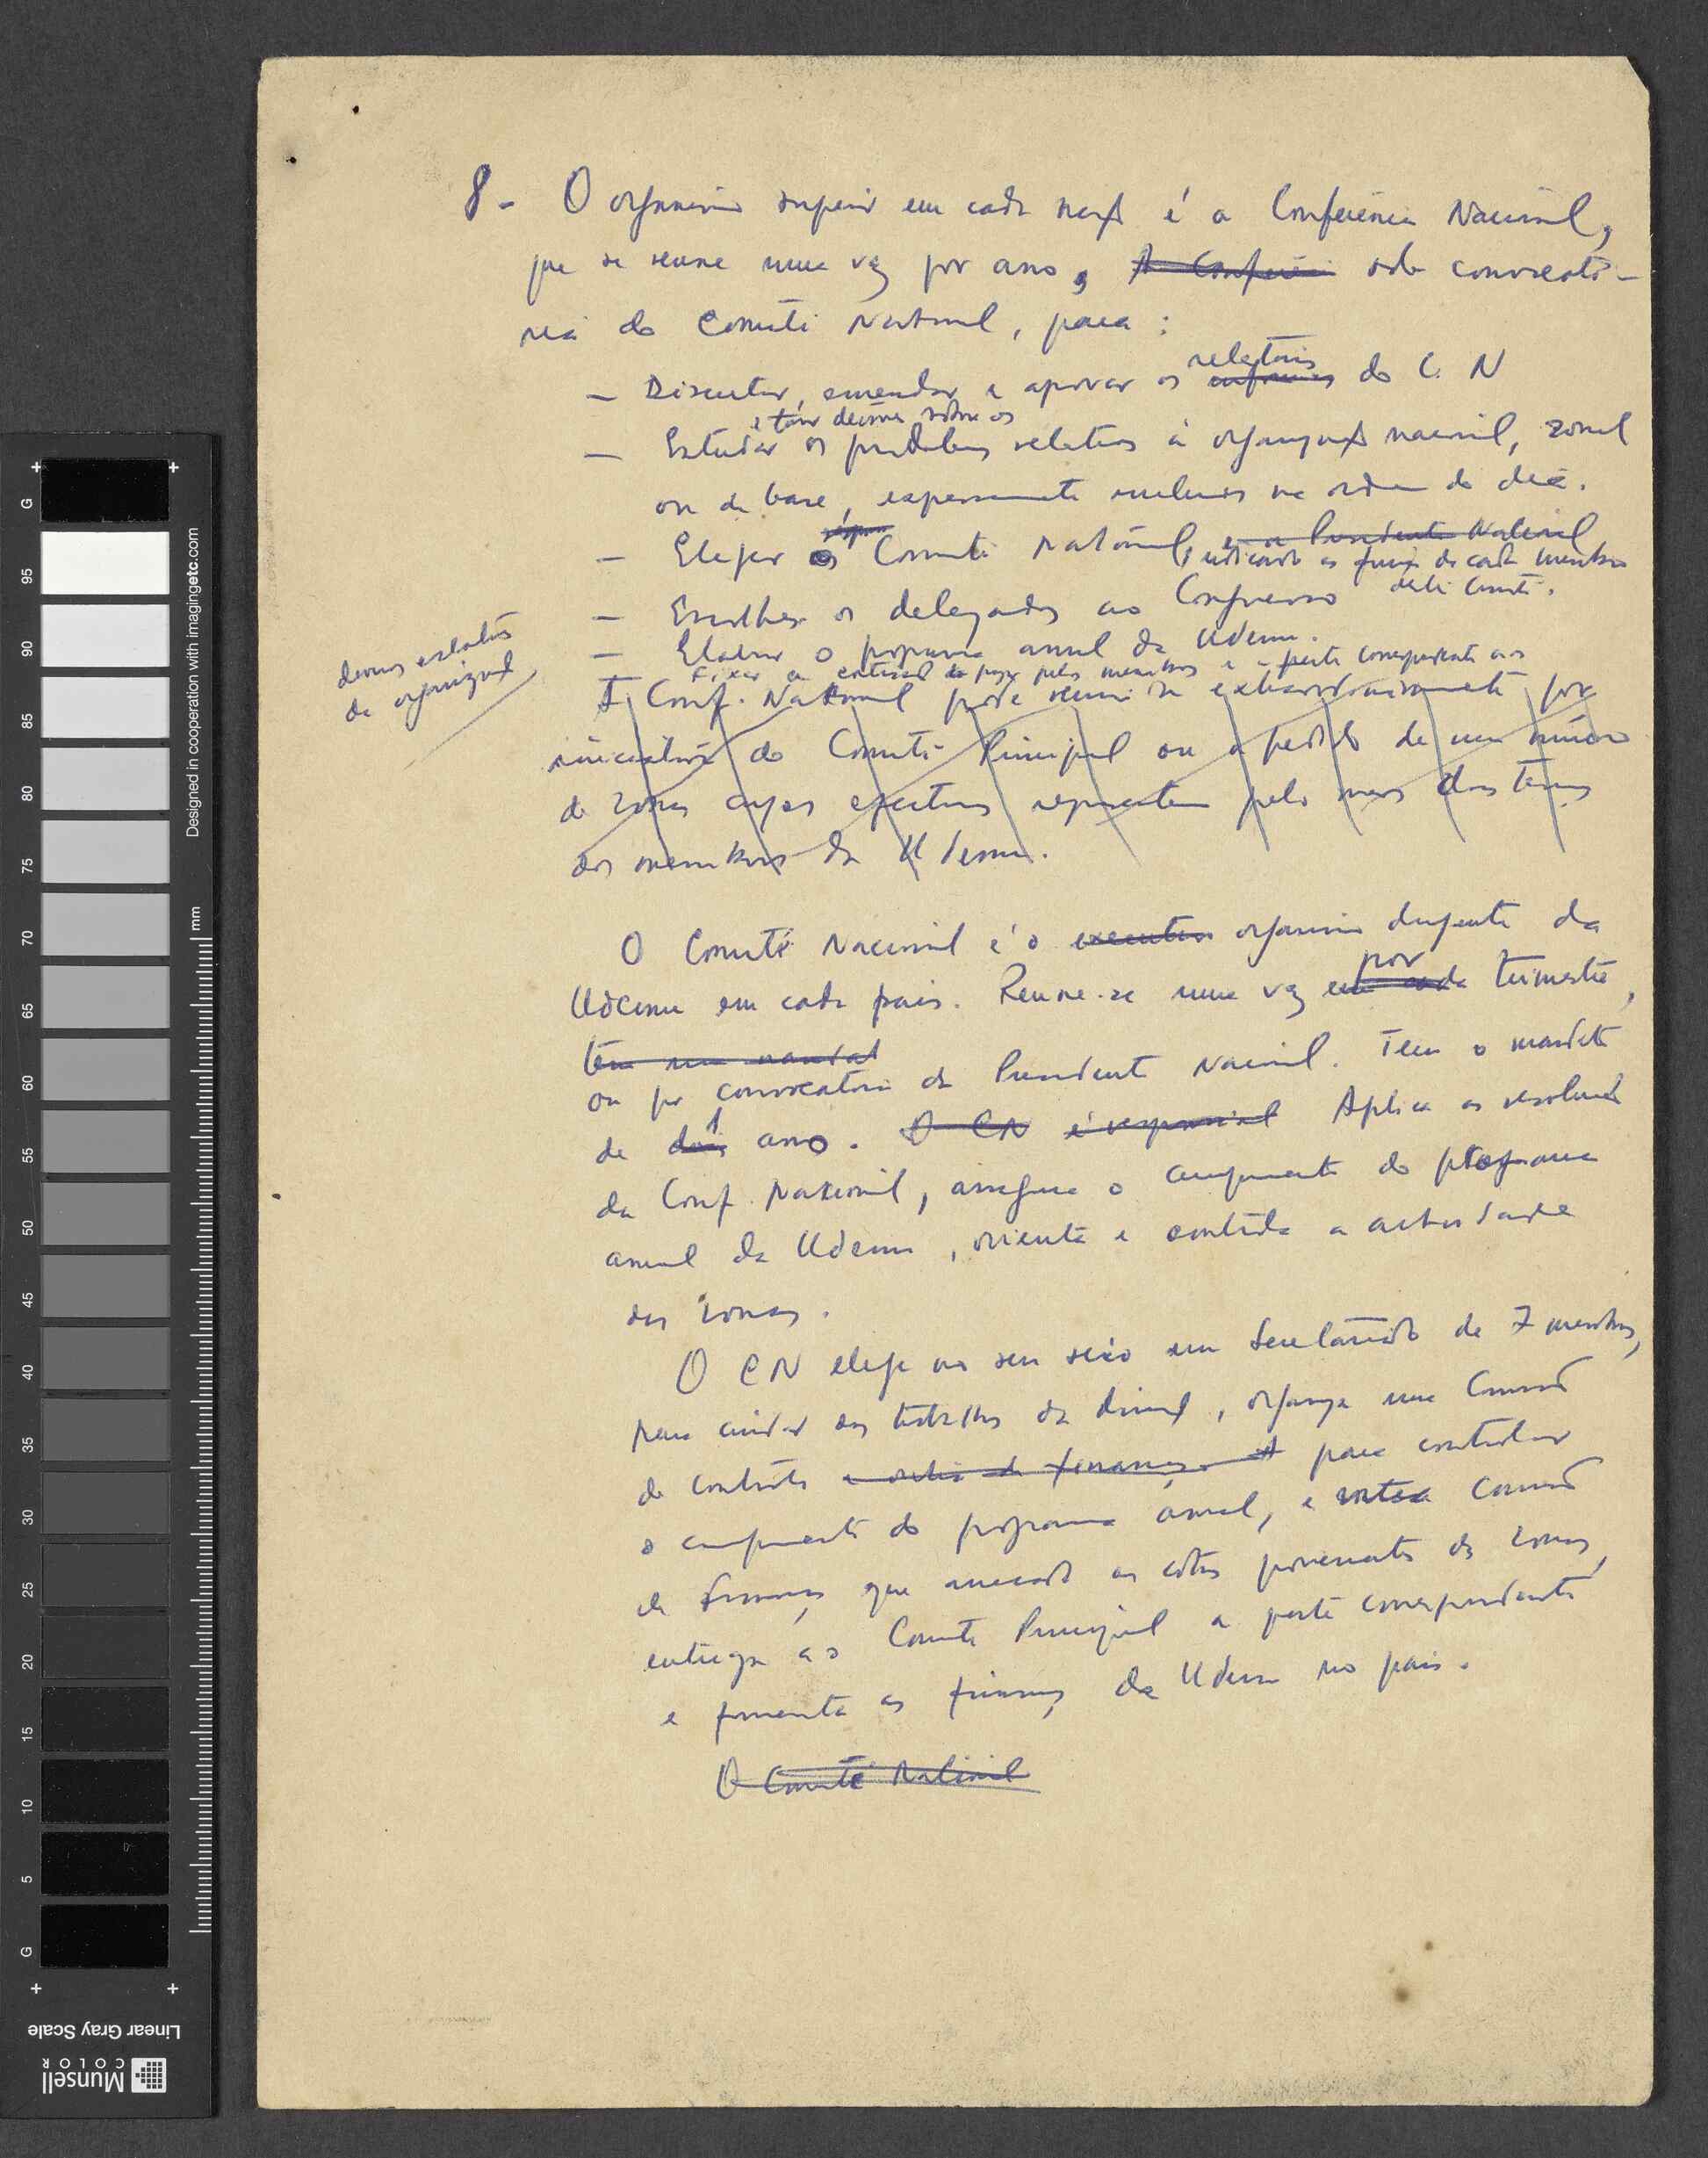 8 - O organismo superior em cada nação é a Conferência Nacional,
que se reune uma vez por ano, A Conferência sob convocató-
ria do Comité National, para:
relatórios
— Discutir, emendar e aprovar os informes do C. N
e tomar decisões sobre os
— Estudar os problemas relativos à organização nacional, zonal
ou de base, expressamente incluidos na ordem do dia.
— Eleger os Comité National, e o Presidente National
indicando as funções de cada membro
deste Comité.
— Escolher os delegados ao Congresso
— Elaborar o programa anual da Udemu.
Fixar a cotização a pagar pelos membros e a parte correspondente aos
A Conf. National pode reunir-se extraordinariamente por
iniciativa do Comité Principal ou a pedido de um número
de zonas cujos efectivos representem pelo menos dois terços
dos membros da Udemu.
da organização
O Comité Nacional é o executivo organismo dirigente da
Udemu em cada pais. Reune-se uma vez em cada trimestre,
por
tem um mandat
ou por convocatória da Presidente Nacional. Tem o mandato
de dois 1 ano. O CN é responsável Aplica as resoluções
da Conf. National, assegura o cumprimento do programa
anual da Udemu, orienta e controla a actividade
das zonas.
O CN elege no seu seio um Secretariado de 7 membros,
para cuidar dos trabalhos da direcção, organiza uma Comissão
de Controlo e outra de finanças. A para controlar
o cumprimento do programa anual, e outra Comissão
de finanças que arrecada as cotas provenientes das zonas,
entrega ao Comité Principal a parte correspondente
e fomenta as finanças da Udemu no pais.
O Comité National
G
95
90
85
80
75
70
65
60
55
50
45
40
35
30
25
20
15
10
5
G
mm
Designed in cooperation with imagingetc.com
Munsell
COLOR
Linear Gray Scale